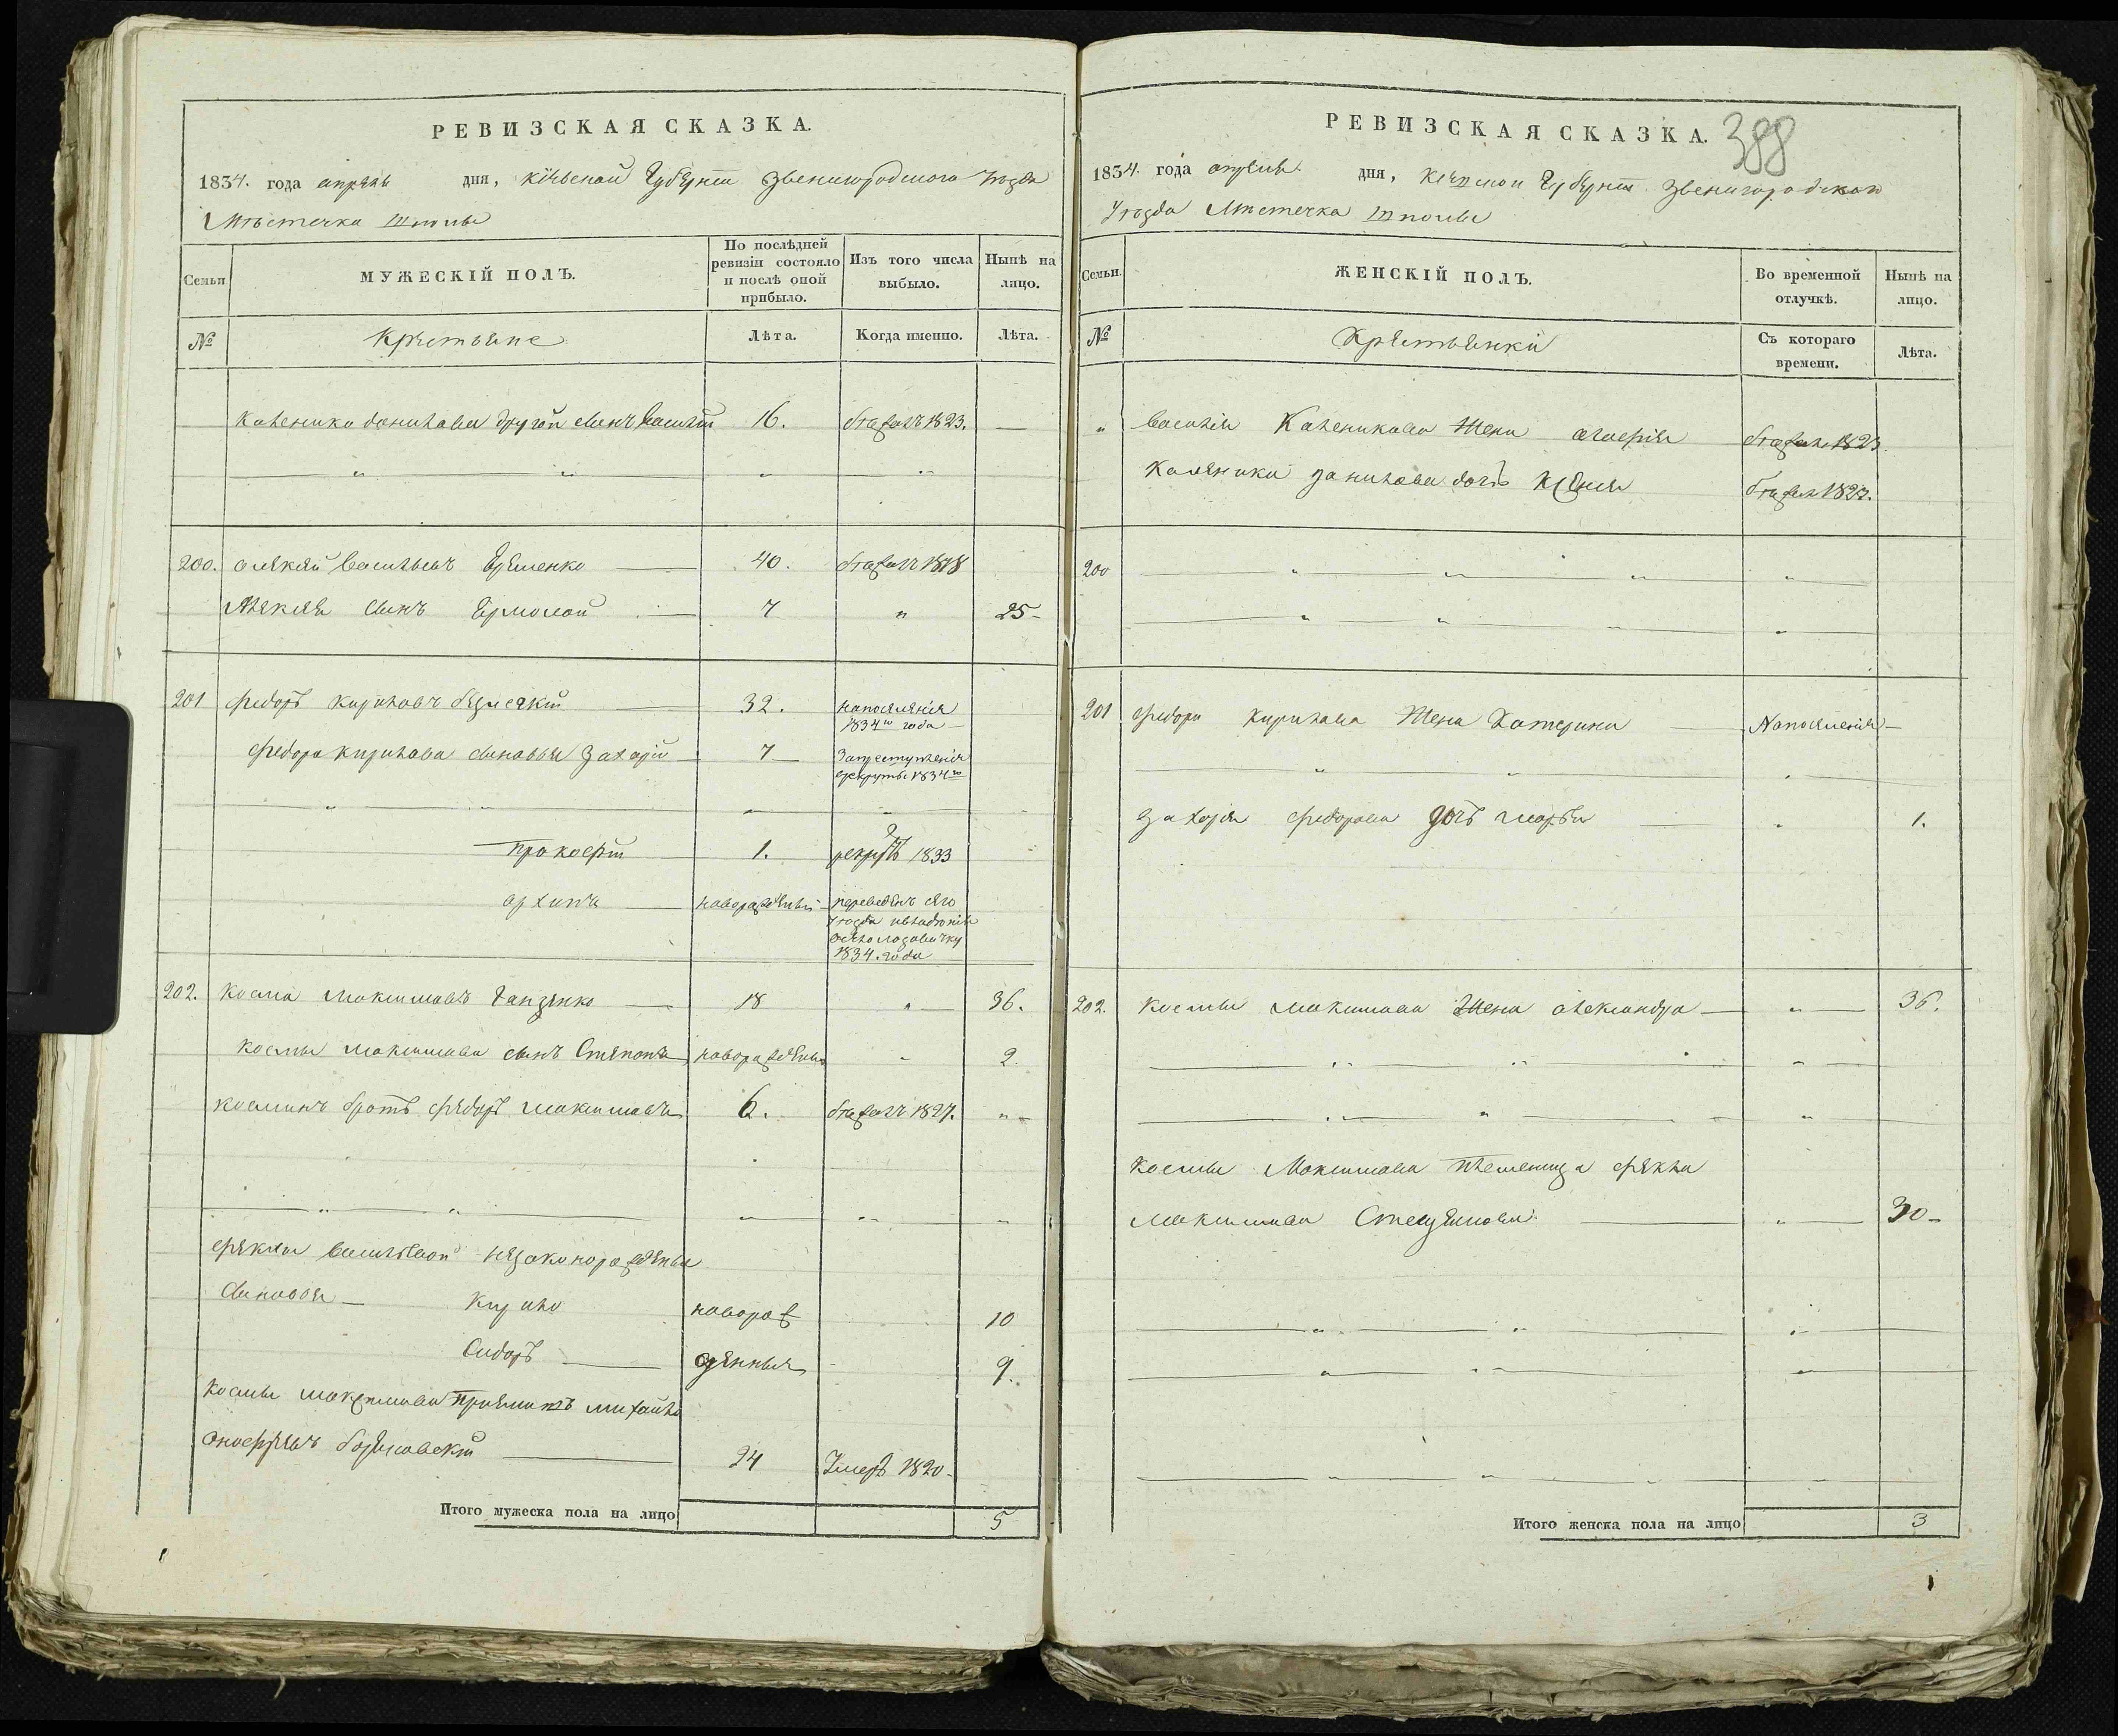 РЕВИЗСКАЯ СКАЗКА.
1834. года апрель дня, Кіевской Губерніи Звенигородского Уезда
Мѣстечка Шполы
Семьи
МУЖЕСКІЙ ПОЛЪ.
По послѣдней ревизіи состояло и послѣ оной прибыло.
Изъ того числа выбыло.
Нынѣ на лицо.
№
Крестьяне
Лѣта.
Когда именно.
Лѣта.
Каленика данилова другой сынъ Василій 16. бежалъ 1823. —
200. Алексей Васильевъ Еременко 40. бежалъ 1818
Алексея сынъ Ермолай 7 " 25
201 Федоръ Кириловъ 32. на поселения
1834го года
Федора Кирилова сыновья Захарій 7 За преступления
рекруты 1834го
Прокофій 1. рекрутъ 1833
Архипъ новорожденный переведенъ сего
уезда
1834. года
202. Косма Максимовъ Ганзенко 18 " 36.
Космы Максимова сынъ Степанъ новорожденный " 2.
Косминъ братъ Федоръ Максимовъ 6. бежалъ 1827. "
Феклы Васильевой незаконорожденные
Сыновья Кирило новорож 10
Сидоръ денныя 9.
Космы Максимова приемышъ Михайло
Онофріевъ 24 Умеръ 1820
Итого мужеска пола на лицо 5
РЕВИЗСКАЯ СКАЗКА. 388
1834. года апреля дня, Киевской Губерніи Звенигородского
Уезда Мѣстечка Шполы
Семьи.
ЖЕНСКІЙ ПОЛЪ.
Во временной отлучкѣ.
Нынѣ на лицо.
№
Крестьянки
Съ котораго времени.
Лѣта.
" Василія Каленикова Жена бежала 1823
Каленика Данилова дочь Ксенія бежала 1823.
200
201 Федора Кирилова Жена Катерина На поселения
Захарія Федорова дочь Марья " 1.
202. Космы Максимова Жена Александра " 36.
Космы Максимова племеница Фекла
Максимова " 30
Итого женска пола на лицо 3